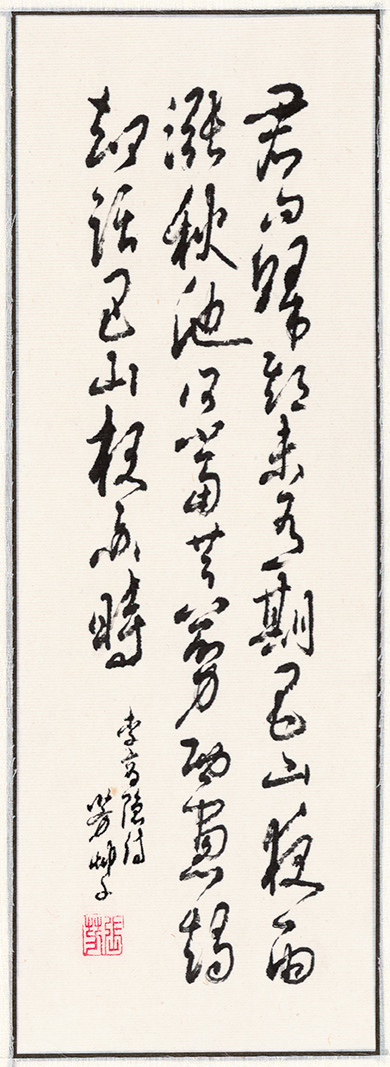 君問歸期未有期巴山夜雨
漲秋池何當共剪西窗燭
却話巴山夜雨時
李商隱詩
芳艸子
張芳